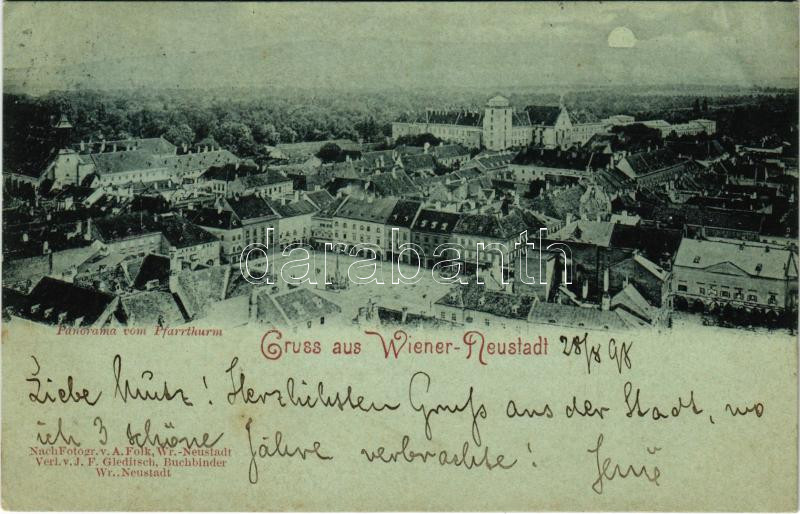 darabanth
Panorama vom Pfarrthurm
Gruss aus Wiener-Neustadt
28/8 98
Liebe Mutz! Herzlichsten Gruß aus der Stadt, wo
ich 3 schöne Jahre verbrachte!
Nach Fotogr. v. A. Folk, Wr.-Neustadt
Verl. v. J. F. Gleditsch, Buchbinder
Wr.. Neustadt